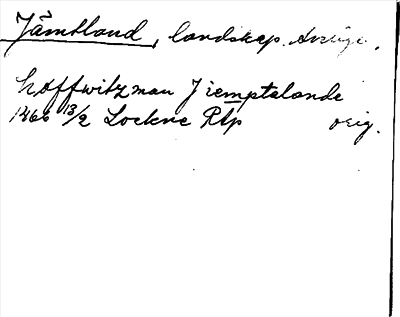 Jämtland, landskap. Sverige.
hoffwitzman J iemptalande
1466 13/2 Lockne Rtp orig.